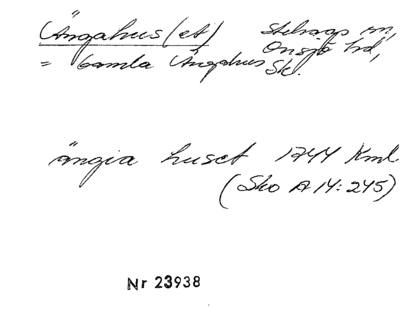 Ängahus (et) Stehags sn,
= Gamla Ängahus Onsjö hd,
Sk.
ängia huset 1744 Kml
(Sko A 14:245)
Nr 23938